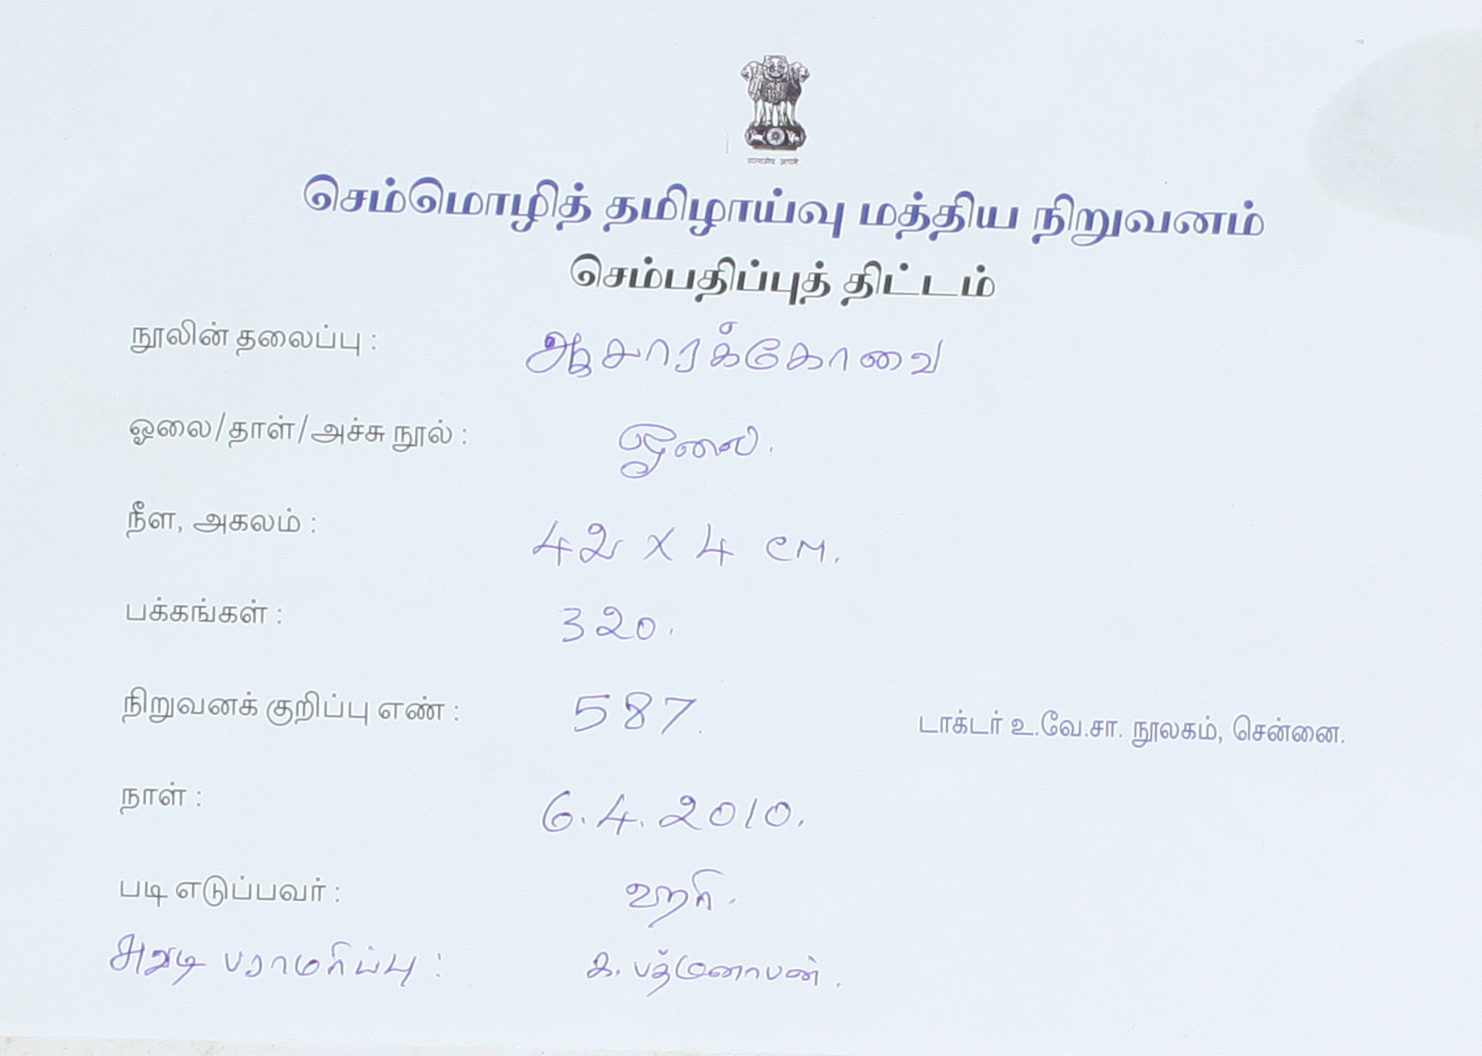 செம்மொழித் தமிழாய்வு மத்திய நிறுவனம்
செம்பதிப்புத் திட்டம்
நூலின் தலைப்பு : ஆசாரக்கோவை
ஓலை/தாள்/அச்சு நூல் : ஓலை.
நீள, அகலம் : 42 x 4 cm.
பக்கங்கள் : 320.
நிறுவனக் குறிப்பு எண் : 587. டாக்டர் உ.வே.சா. நூலகம், சென்னை.
நாள் : 6.4.2010.
படி எடுப்பவர் : ஹரி.
சுவடி பராமரிப்பு : க. பத்மனாபன்.